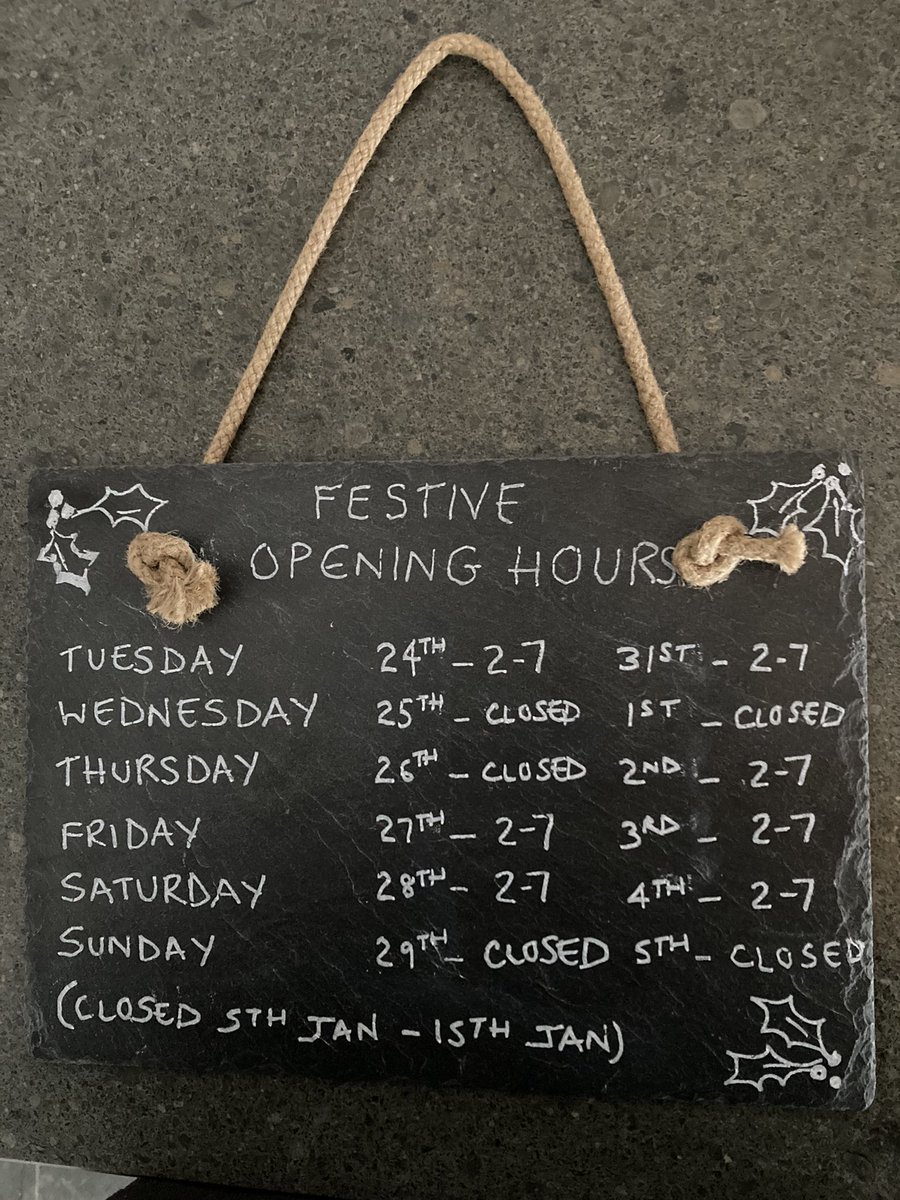 FESTIVE
OPENING HOURS
TUESDAY 24TH - 2-7 31ST - 2-7
WEDNESDAY 25TH - CLOSED 1ST - CLOSED
THURSDAY 26TH - CLOSED 2ND - 2-7
FRIDAY 27TH - 2-7 3RD - 2-7
SATURDAY 28TH - 2-7 4TH - 2-7
SUNDAY 29TH - CLOSED 5TH - CLOSED
(CLOSED 5TH JAN - 15TH JAN)